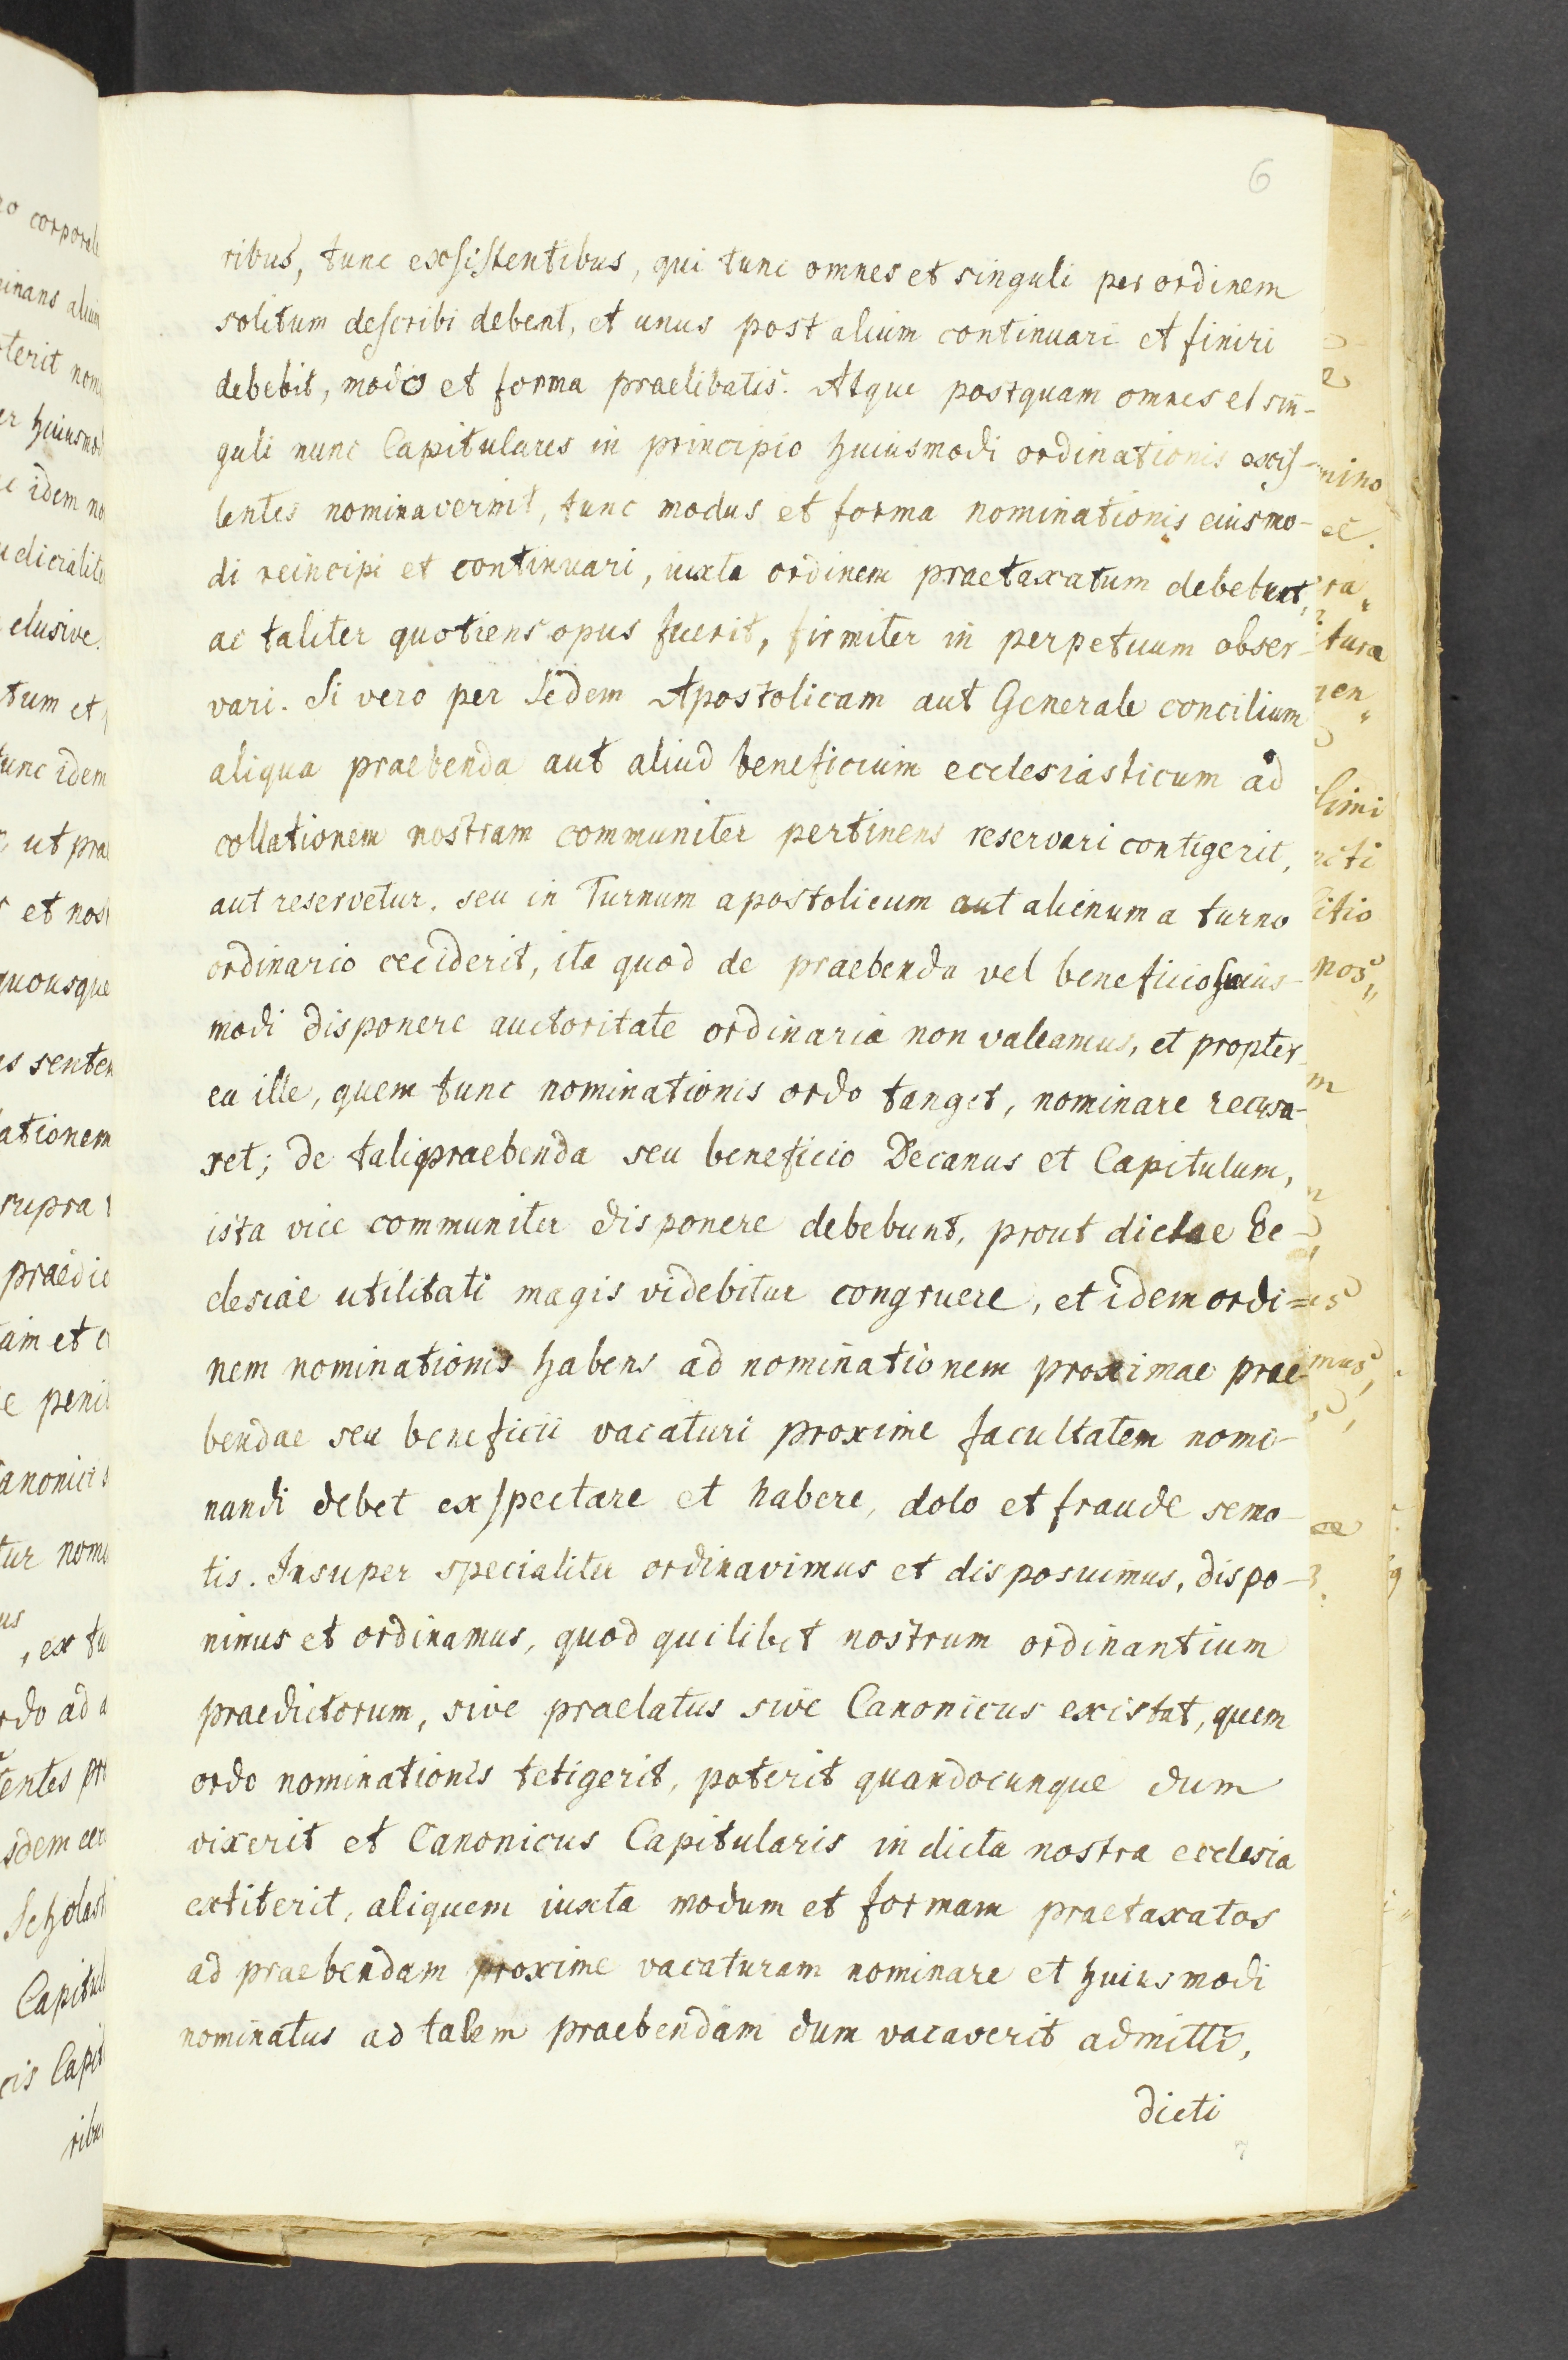 6
ribus, tunc exsistentibus, qui tunc omnes et singuli per ordinem
solitum describi debent, et unus post alium continuari et finiri
debebit, modo et forma praelibatis. Atque postquam omnes et sin-
guli nunc Capitulares in principio huiusmodi ordinationis exis-
tentes nominaverint, tunc modus et forma nominationis eiusmo-
di reincipi et continuari, iuxta ordinem praetaxatum debebunt,
ac taliter quotiens opus fuerit, firmiter in perpetuum obser-
vari. Si vero per Sedem Apostolicam aut Generale concilium
aliqua praebenda aut aliud beneficium ecclesiasticum ad
collationem nostram communiter pertinens reservari contigerit,
aut reservetur. seu in Turnum apostolicum aut alienum a turno
ordinario ceciderit, ita quod de praebenda vel beneficio huius-
modi disponere auctoritate ordinaria non valeamus, et propter-
ea ille, quem tunc nominationis ordo tanget, nominare recusa-
ret; de tali praebenda seu beneficio Decanus et Capitulum,
ista vice communiter disponere debebunt, prout dictae Ec-
clesiae utilitati magis videbitur congruere, et idem ordi=
nem nominationis habens ad nominationem proximae prae-
bendae seu beneficii vacaturi proxime facultatem nomi-
nandi debet exspectare et habere, dolo et fraude semo-
tis. Insuper specialiter ordinavimus et disposuimus, dispo-
nimus et ordinamus, quod quilibet nostrum ordinantium
praedictorum, sive praelatus sive Canonicus existat, quem
ordo nominationis tetigerit, poterit quandocunque dum
vixerit et Canonicus Capitularis in dicta nostra ecclesia
extiterit, aliquem iuxta modum et formam praetaxatos
ad praebendam proxime vacaturam nominare et huiusmodi
nominatus ad talem praebendam dum vacaverit admitti,
dicti